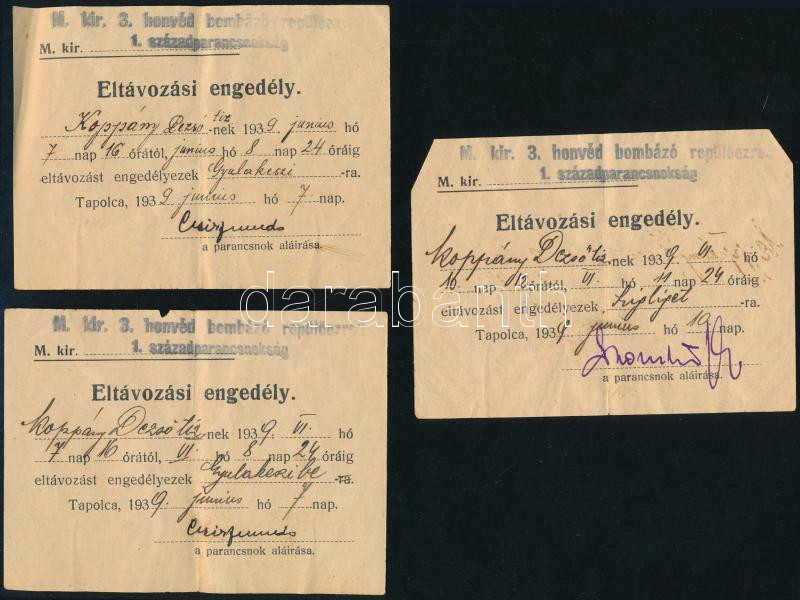 M. kir. 3. honvéd bombázó repülőezre
1. századparancsnokság
M. kir.
Eltávozási engedély.
Koppány Dezső tiz -nek 1939 junius hó
7 nap 16 órától, junius hó 8 nap 24 óráig
eltávozást engedélyezek Gyulakeszi -ra.
Tapolca, 1939 junius hó 7 nap.
a parancsnok aláírása.
M. kir. 3. honvéd bombázó repülőezre
1. századparancsnokság
M. kir.
Eltávozási engedély.
Koppány Dezső tiz -nek 1939. VI. hó
7 nap 16 órától, VI hó 8 nap 24 óráig
eltávozást engedélyezek Gyulakeszibe -ra.
Tapolca, 1939. junius hó 7 nap.
a parancsnok aláírása.
M. kir. 3. honvéd bombázó repülőezre
1. századparancsnokság
M. kir.
Eltávozási engedély.
Koppány Dezső tiz -nek 1939 VI hó
10 nap 12 órától, VI. hó 11 nap 24 óráig
eltávozást engedélyezek -ra.
Tapolca, 1939 junius hó 10 nap.
a parancsnok aláírása.
darabanth.com